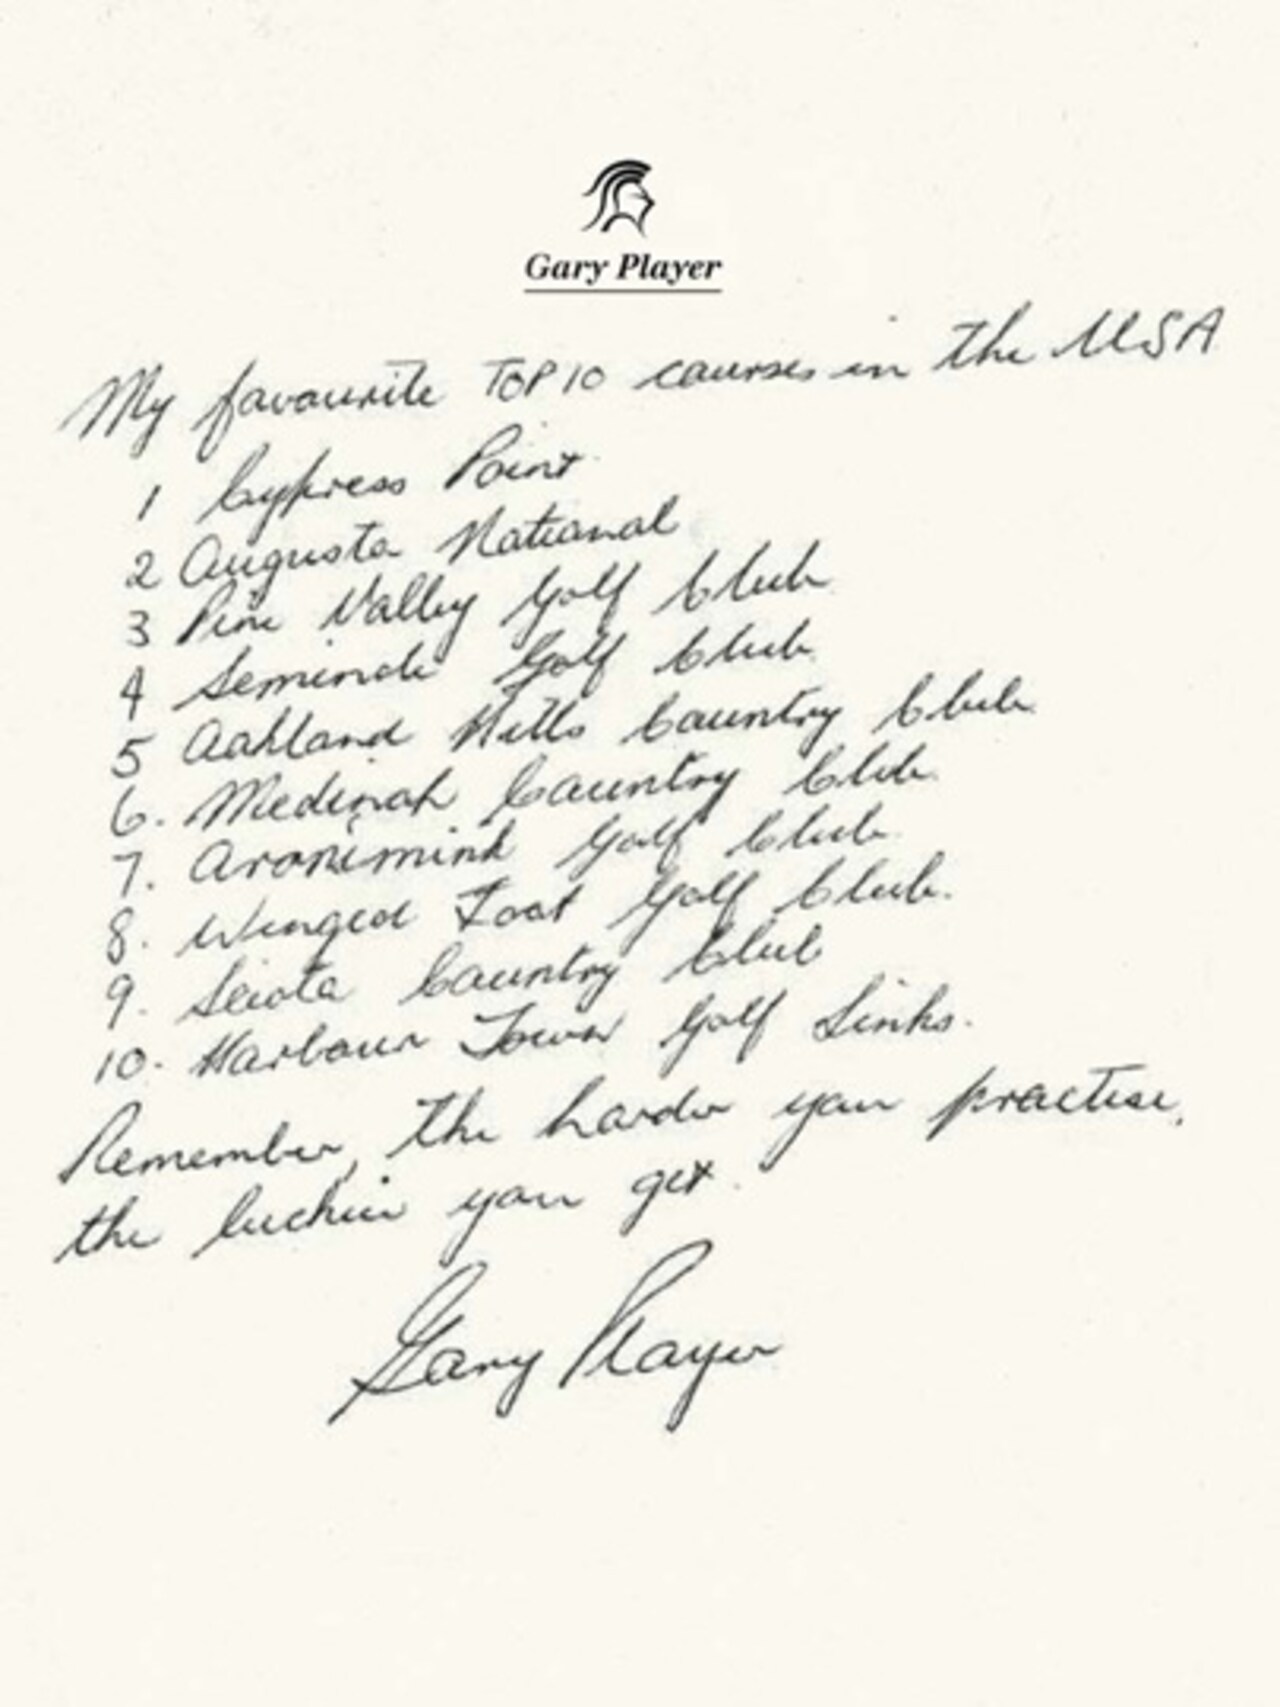 Gary Player
My favourite TOP 10 courses in the USA
1 Cypress Point
2 Augusta National
3 Pine Valley Golf Club
4 Seminole Golf Club
5 Oakland Hills Country Club
6. Medinah Country Club.
7. Aronimink Golf Club.
8. Winged Foot Golf Club.
9. Scioto Country Club
10. Harbour Town Golf Links.
Remember, the harder you practise,
the luckier you get.
Gary Player